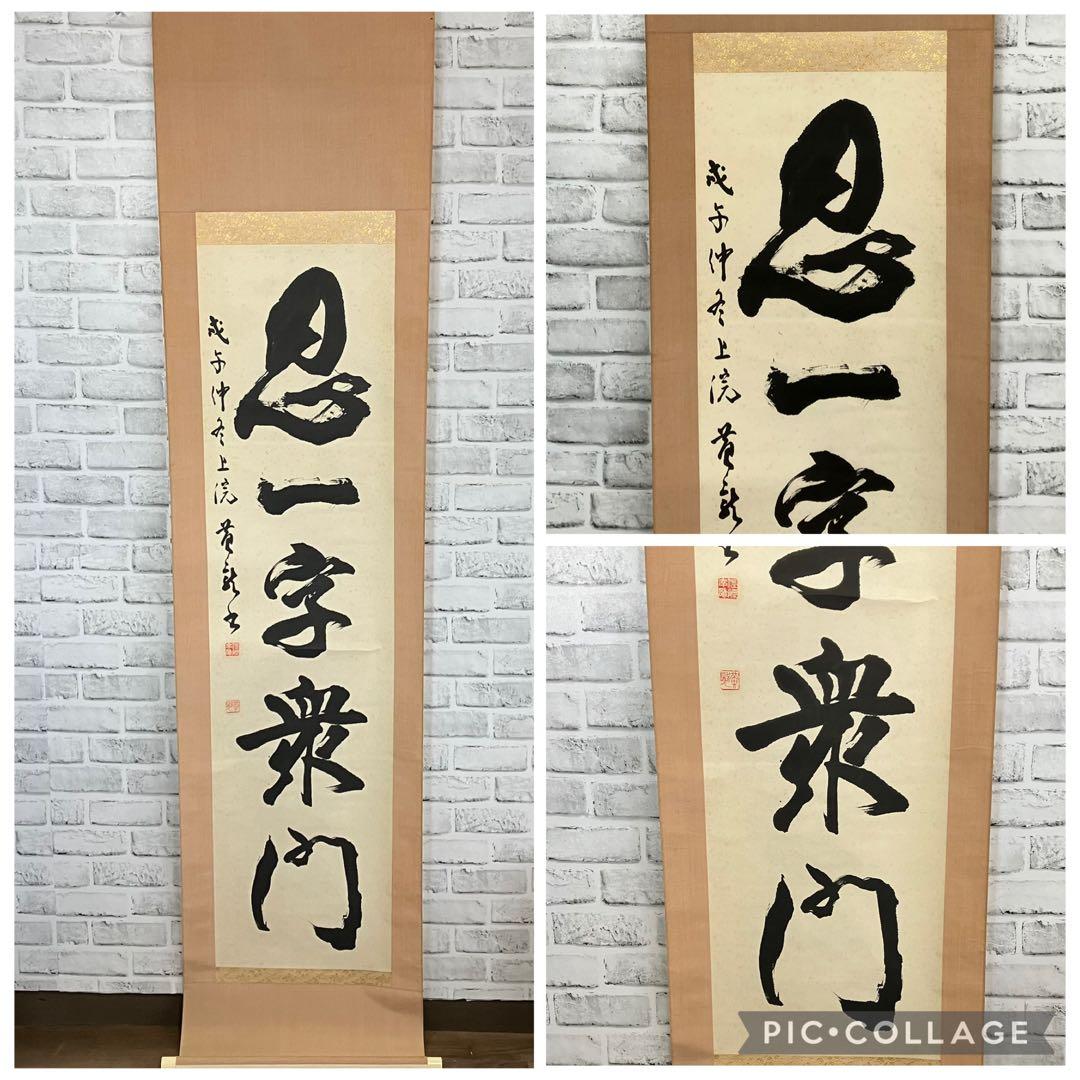 忍一字衆門
戊午仲冬上浣 黄龍書
忍一字
戊午仲冬上浣 黄龍
衆門
PIC•COLLAGE